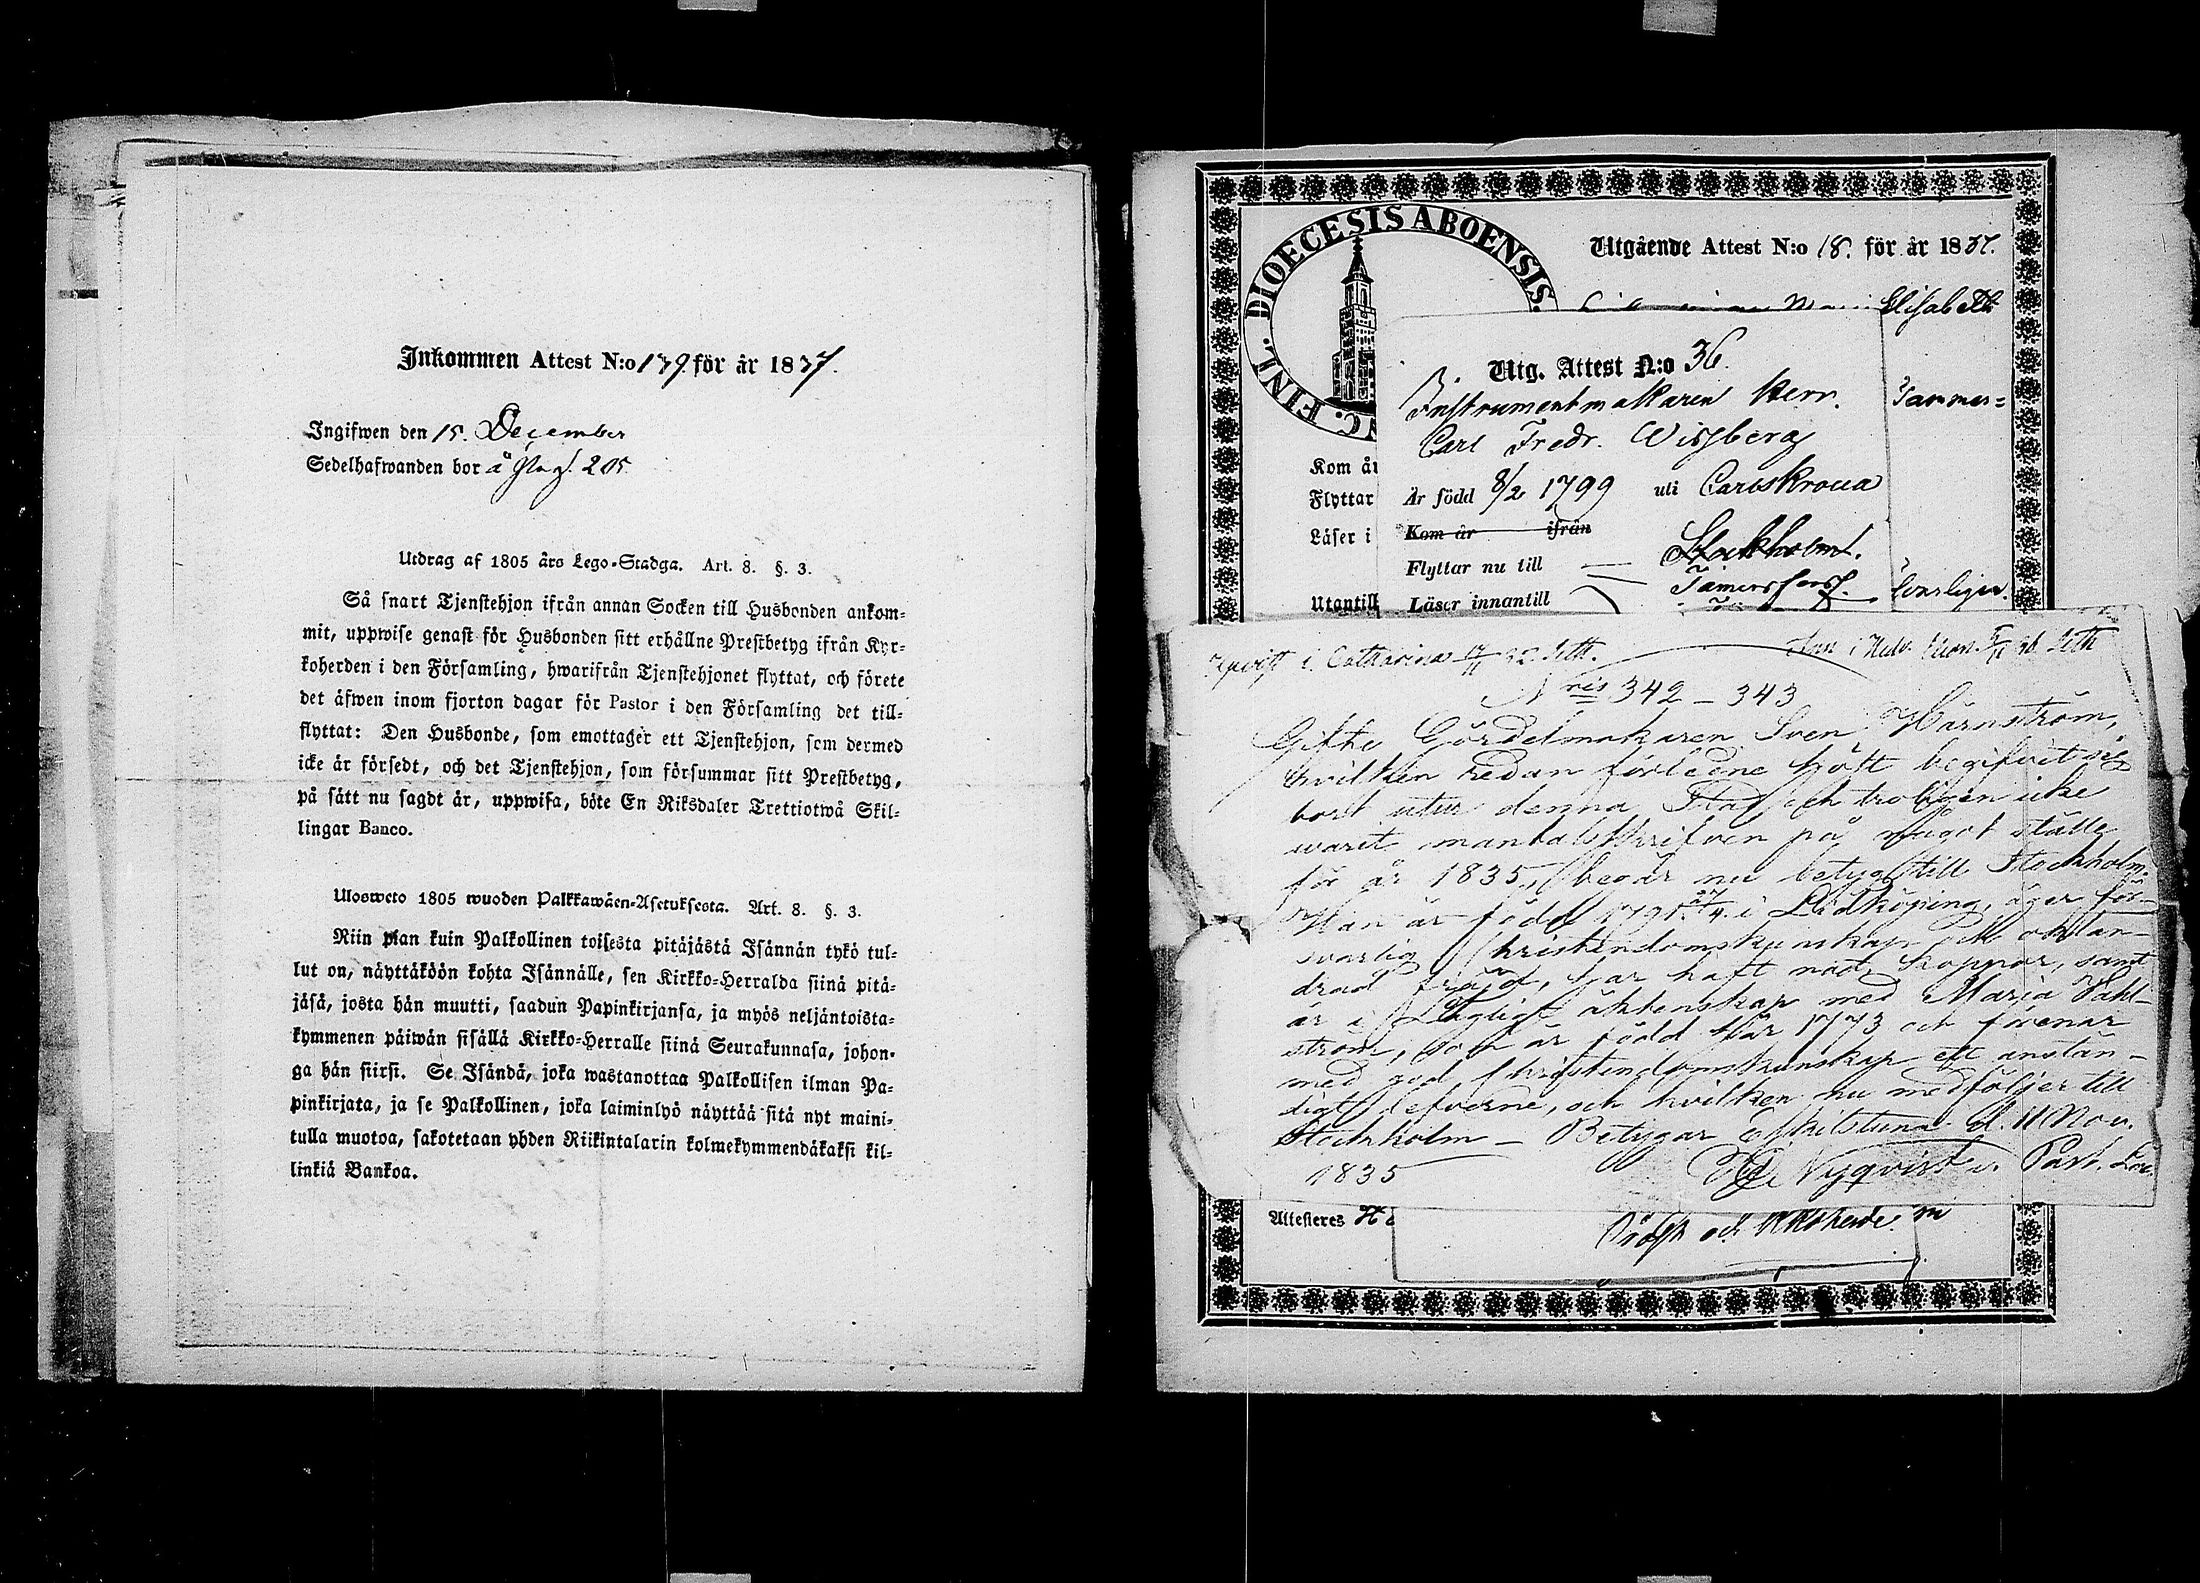 Inkommen Attest N:o 139 för år 1837.
Ingifwen den 15. December
Sedelhafwanden bor å 205
Utdrag af 1805 års Lego-Stadga. Art. 8. §. 3.
Så snart Tjenstehjon ifrån annan Socken till Husbonden ankom-
mit, uppwise genast för Husbonden sitt erhållne Prestbetyg ifrån Kyr-
koherden i den Församling, hwarifrån Tjenstehjonet flyttat, och förete
det äfwen inom fjorton dagar för Pastor i den Församling det till-
flyttat: Den Husbonde, som emottager ett Tjenstehjon, som dermed
icke är försedt, och det Tjenstehjon, som försummar sitt Prestbetyg,
på sätt nu sagdt är, uppwisa, böte En Riksdaler Trettiotwå Skil-
lingar Banco.
Ulosweto 1805 wuoden Palkkawäen-Asetuksesta. Art. 8. §. 3.
Niin pian kuin Palkollinen toisesta pitäjästä Isännän tykö tul-
lut on, näyttäköön kohta Isännälle, sen Kirkko-Herralda siinä pitä-
jäsä, josta hän muutti, saadun Papinkirjansa, ja myös neljäntoista-
kymmenen päiwän sisällä Kirkko-Herralle siinä Seurakunnasa, johon-
ga hän siirsi. Se Isändä, joka wastanottaa Palkollisen ilman Pa-
pinkirjata, ja se Palkollinen, joka laiminlyö näyttää sitä nyt maini-
tulla muotoa, sakotetaan yhden Riikintalarin kolmekymmendäkaksi kil-
linkiä Bankoa.
DIOECESIS ABOENSIS.
C. FINL.
Utgående Attest N:o 18. för år 1837.
Elisabeth
Tammer=
Kom år
Flyttar
Läser i
Utantill
Utg. Attest N:o 36.
Instrumentmakaren Herr.
Carl Fredr. Wissberg
Är född 8/2 1799 uti Carlskrona
Kom år ifrån
Flyttar nu till Stockholm.
Läser innantill
i Catharina
Nris 342 – 343
Gifte Gördelmakaren Sven Härnström,
hvilken redan förledne höst begifvit sig
bort utur denna Stad och troligen icke
warit mantalsskrifven på något ställe
för år 1835, begär nu betyg till Stockholm.
Han är född 1791 27/4 i Lidköping, äger för-
svarlig Christendomskunskap och oklan-
drad fräjd, har haft nat. koppor, samt
är i Lagligt äktenskap med Maria Wahl-
ström, som är född här 1773 och förenar
med god Christendomskunskap ett anstän-
digt lefverne, och hvilken nu medföljer till
Stockholm – Betygar Eskilstuna d. 11 Nov.
1835 Nyqvist v. Past. Loc.
Attesteres
Prost och Kkoherde